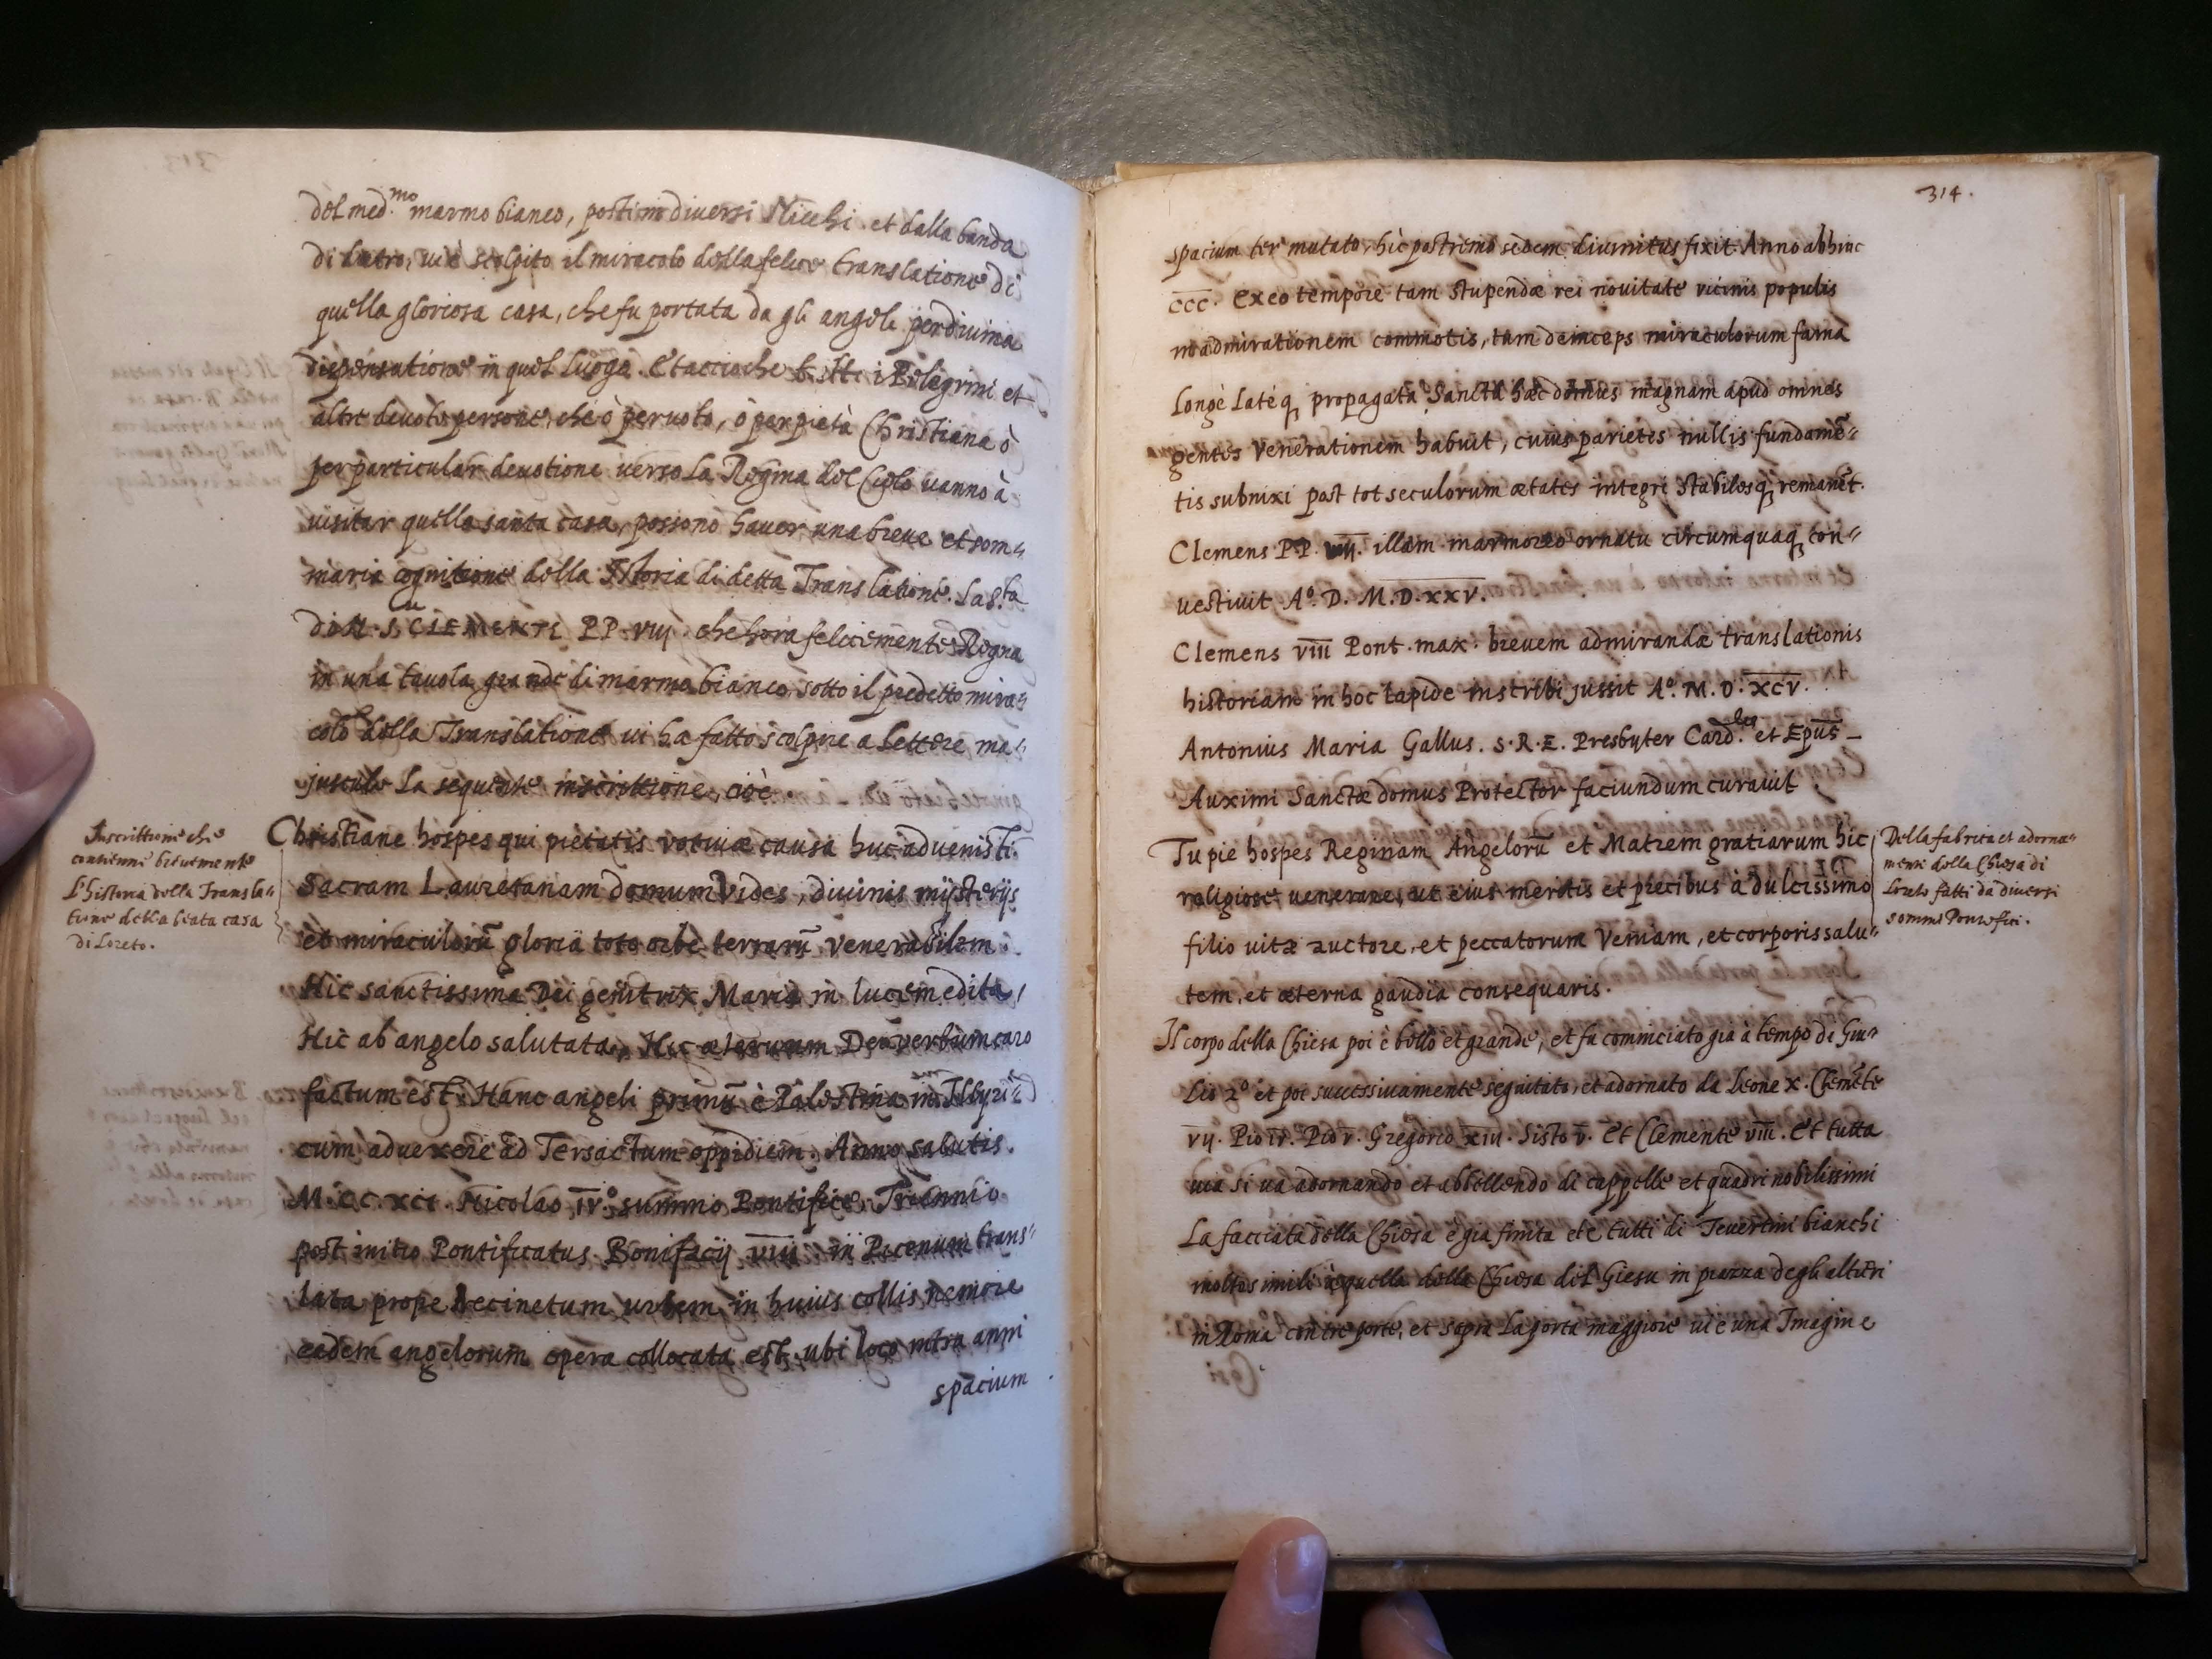 del med.mo marmo bianco, posti in diuersi Nicchi. et dalla banda
di dietro, ui è scolpito il miracolo della felice translatione di
quella gloriosa casa, che fu portata da gli angeli per diuina
dispensatione in quel luogo. Et accioche tutti i Pelegrini et
altre deuote persone, che ò per uoto, ò per pietà Christiana ò
per particular deuotione uerso la Regina del Cielo uanno à
uisitar quella santa casa, possono hauer una breue et som=
maria cognitione della Istoria di detta Translatione. La S.ta
di N. S. CLEMENTE PP. VIIJ. che hora felicemente Regna
in una tauola grande di marmo bianco sotto il predetto mira=
colo della Translatione ui ha fatto scolpire a lettere ma=
juscule la sequente inscrittione, cioè
Inscrittione che
contiene breuemente
l'historia della Transla=
tione della beata casa
di Loreto.
Christiane hospes qui pietatis votiuæ causa huc aduenisti.
Sacram Lauretanam domum Vides, diuinis mijsterijs
et miraculorū gloria toto orbe terrarū venerabilem.
Hic sanctissima Dei genitrix Maria in lucem edita,
Hic ab angelo salutata, Hic æternum Dei verbum caro
factum est. Hanc angeli primū è Palestina in Illyri=
cum aduexere ad Tersactum oppidum. Anno salutis.
M. CC. XCI. Nicolao IV.o summo Pontifice. Triennio
post initio Pontificatus Bonifacij VIII in Picenum trans=
lata prope Recinetum urbem in huius collis nemore
eadem angelorum opera collocata est. ubi loco intra anni
spacium
314.
spacium ter mutato, hic postremò sedem diuinitus fixit Anno abhinc
CCC. Ex eo tempore tam stupendæ rei nouitate vicinis populis
in admirationem commotis, tum deinceps miraculorum fama
Longè Latéq. propagata Sancta hæc domus magnam apud omnes
gentes Venerationem habuit, cuius parietes nullis fundamē=
tis subnixi post tot seculorum ætates integri stabilesq. remanēt.
Clemens PP. VIJ. illam marmoreo ornatu circumquaq. con=
uestiuit A.o D. M.D.XXV.
Clemens VIII Pont. max. breuem admirandæ translationis
historiam in hoc lapide inscribi jussit A.o M. D. XCV.
Antonius Maria Gallus. S. R. E. Presbyter Card.lis et Epūs
Auximi Sanctæ domus Protector faciundum curauit.
Tu pie hospes Reginam Angelorū et Matrem gratiarum hic
religiose venerare, ut eius meritis et precibus à dulcissimo
filio vitæ auctore, et peccatorum Veniam, et corporis salu=
tem, et æterna gaudia consequaris.
Della fabrica et adorna=
menti della Chiesa di
Loreto fatti da diuersi
sommi Pontefici.
Il corpo della Chiesa poi è bello et grande, et fu cominciato gia à tempo di Giu=
lio 2.o et poi successiuamente seguitato, et adornato da Leone X. Clemēte
VIJ. Pio IV. Pio V. Gregorio XIII. Sisto V. Et Clemente VIII. et tutta
uia si ua adornando et abbellendo di cappelle et quadri nobilissimi
La facciata della Chiesa è gia finita et è tutti di Teuertini bianchi
molto simile à quella della Chiesa del Giesu in piazza degli altieri
in Roma con tre porte, et sopra la porta maggiore ui è una Imagine